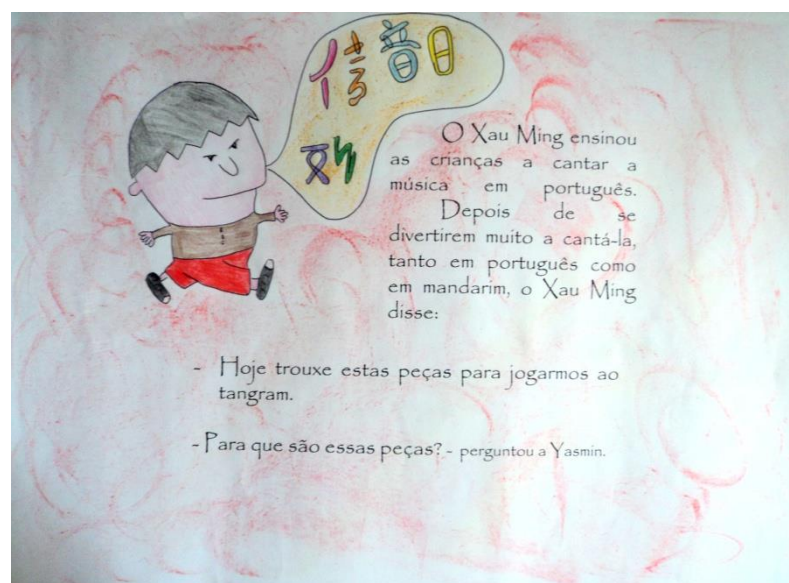 音日
O Xau Ming ensinou
as crianças a cantar a
música em português.
Depois de se
divertirem muito a cantá-la,
tanto em português como
em mandarim, o Xau Ming
disse:
- Hoje trouxe estas peças para jogarmos ao
tangram.
- Para que são essas peças? - perguntou a Yasmin.